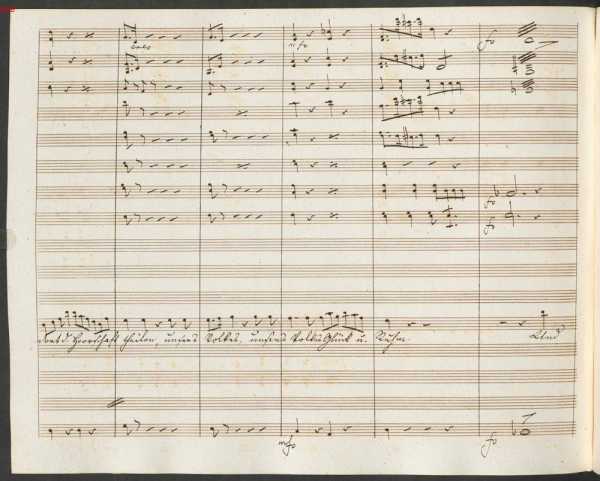 mfo fo
fo
fo
Herrschaft theilen, unsres Volkes, unsres Volkes Glück u. Ruhm. Und
mfo fo